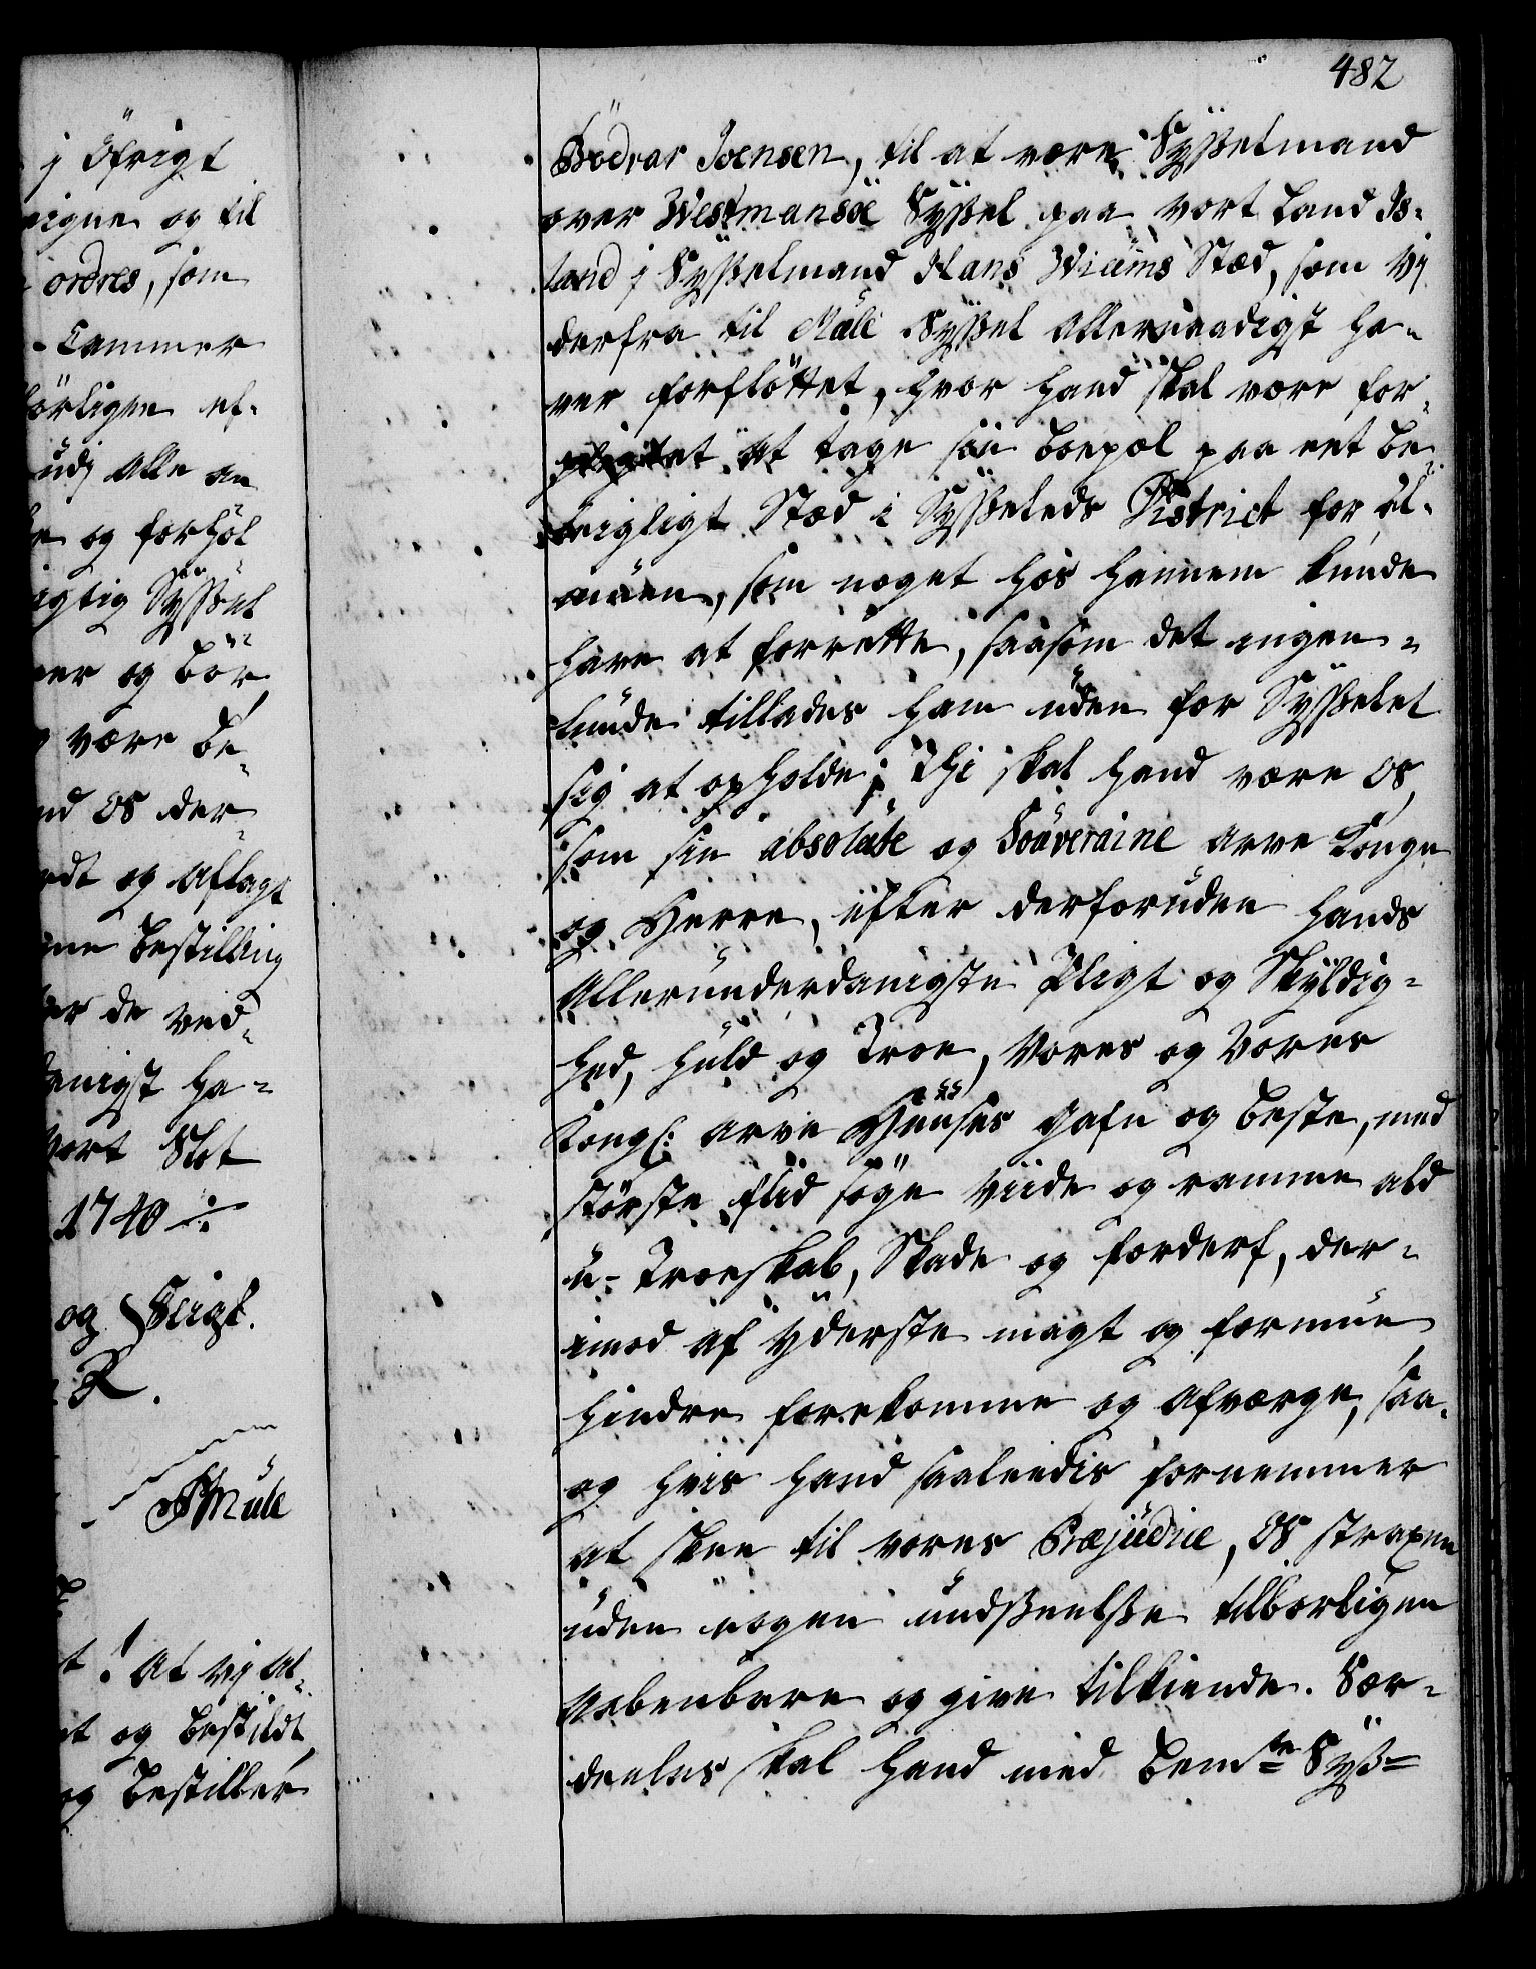 j Öfrigt
eigne og til
ordres, som
Cammer
börligen ef¬
udj Alle an
og forhol
igtig Syssel
er og bör
være be¬
nd OS der¬
edt og Aflagt
ne Bestilling
er de ved¬
danigst ha¬
Vort Slot
1740 ÷
og Seigl.
R.
PMule
! At Vj Al¬
et og bestildt
og bestiller
482
Bödvar Joensen, til at være Sysselmand
over Westmansöe Syssel paa vort Land Is¬
land j Sysselmand Hans Wiums Stæd, som Vj
derfra til Mule Syssel Allernaadigst ha¬
ver forflöttet, hvor hand skal være for¬
pligtet at tage sin boepæl paa eet be¬
leigligt Stæd i Sysselets District for al¬
muen, som noget hos hannem kunde
have at forrette, saasom det ingen¬
lunde tillades ham uden for Sysselet
sig at opholde; Thi skal hand være OS,
som sin absolute og Souveraine arve Konge
og Herre, efter derforuden hands
Allerunderdanigste Pligt og Skyldig¬
hed, huld og Troe, Vores og Vores
Kongl: arve Huuses gafn og beste, med
störste fliid söge viide og ramme, ald
u-Troeskab, Skade og forderf, der¬
imod af yderste magt og formue
hindre forekomme og afværge, saa,
og hvis hand saaleedis fornemmer
at skee til vores Præjudice, OS straxen
uden nogen undseelse tilborligen
Aabenbare og give tilkiende. Sær¬
deeles skal hand med bemte Sys¬